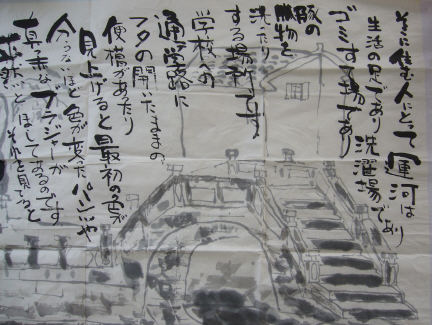 そこに住む人にとって運河は
生活の足であり洗濯場であり
ゴミすて場であり
豚の
臓物を
洗ったり
する場所です
学校への
通学路に
フタの開いたままの
便槽があたり
見上げると最初の色が
分らないほど色が変たパンツや
真赤なブラジャーが
ほしてあるのです
それを見ていると